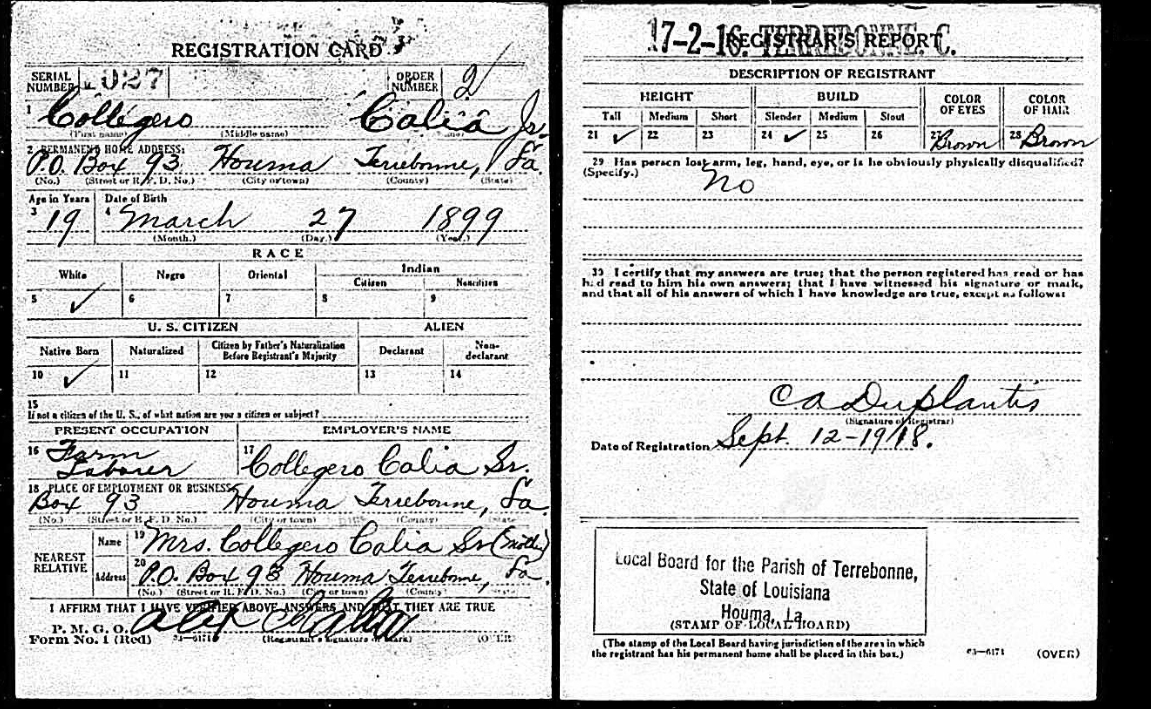 REGISTRATION CARD
SERIAL NUMBER 027
ORDER NUMBER 2
1 Collegero Calia Jr.
(First name) (Middle name)
2 PERMANENT HOME ADDRESS:
P.O. Box 93 Houma Terrebonne, La.
(No.) (Street or R. F. D. No.) (City or town) (County) (State)
Age in Years Date of Birth
3 19 4 March 27 1899
(Month.) (Day.) (Year.)
RACE
White Negro Oriental Indian
Citizen Noncitizen
5 ✓ 6 7 8 9
U. S. CITIZEN ALIEN
Native Born Naturalized Citizen by Father's Naturalization Before Registrant's Majority Declarant Non-declarant
10 ✓ 11 12 13 14
15
If not a citizen of the U. S., of what nation are you a citizen or subject?
PRESENT OCCUPATION EMPLOYER'S NAME
16 Farm Laborer 17 Collegero Calia Sr.
18 PLACE OF EMPLOYMENT OR BUSINESS
Box 93 Houma Terrebonne, La.
(No.) (Street or R. F. D. No.) (City or town) (County) (State)
NEAREST RELATIVE
Name 19 Mrs. Collegero Calia Sr (mother)
Address 20 P.O. Box 93 Houma Terrebonne, La.
(No.) (Street or R. F. D. No.) (City or town) (County) (State)
I AFFIRM THAT I HAVE VERIFIED ABOVE ANSWERS AND THAT THEY ARE TRUE
P. M. G. O. Alex
Form No. 1 (Red) 03—6171 (Registrant's signature or mark) (OVER)
17-2-16. TERREBONNE. C.
REGISTRAR'S REPORT
DESCRIPTION OF REGISTRANT
HEIGHT BUILD COLOR OF EYES COLOR OF HAIR
Tall Medium Short Slender Medium Stout
21 ✓ 22 23 24 ✓ 25 26 27 Brown 28 Brown
29 Has person lost arm, leg, hand, eye, or is he obviously physically disqualified?
(Specify.) no
30 I certify that my answers are true; that the person registered has read or has
had read to him his own answers; that I have witnessed his signature or mark,
and that all of his answers of which I have knowledge are true, except as follows:
C A Duplantis
(Signature of Registrar)
Date of Registration Sept. 12-1918.
Local Board for the Parish of Terrebonne,
State of Louisiana
Houma, La.
(STAMP OF LOCAL BOARD)
(The stamp of the Local Board having jurisdiction of the area in which
the registrant has his permanent home shall be placed in this box.)
03—6171 (OVER)